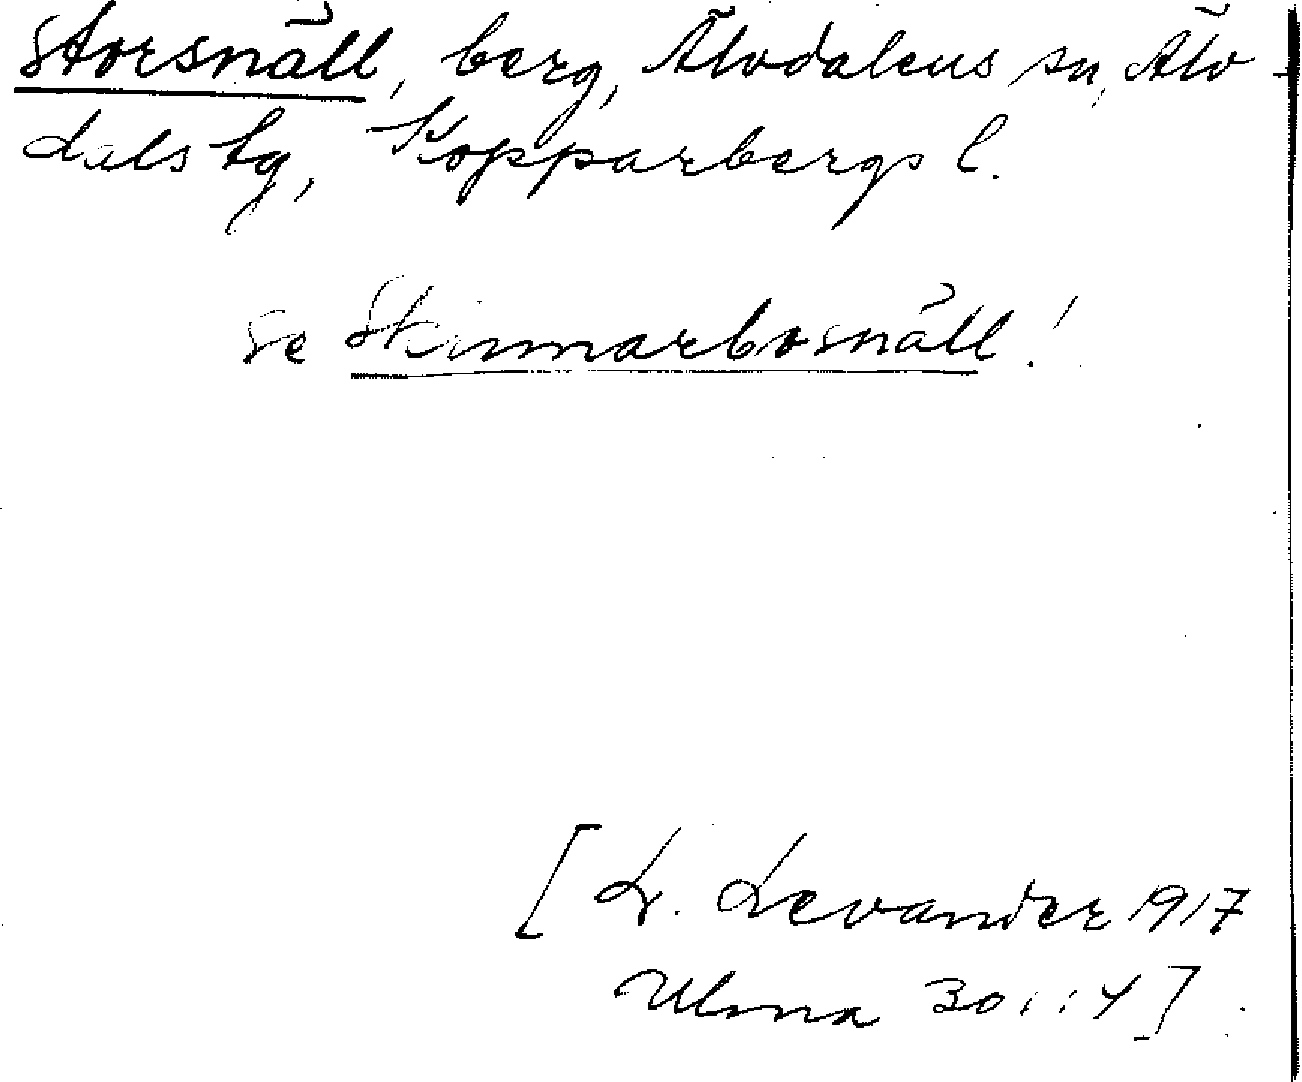 Storsnäll, berg, Älvdalens sn, Älv-
dals tg, Kopparbergs l.
se Skinnarbosnäll!
[L. Levander 1917
Ulma 30::4]